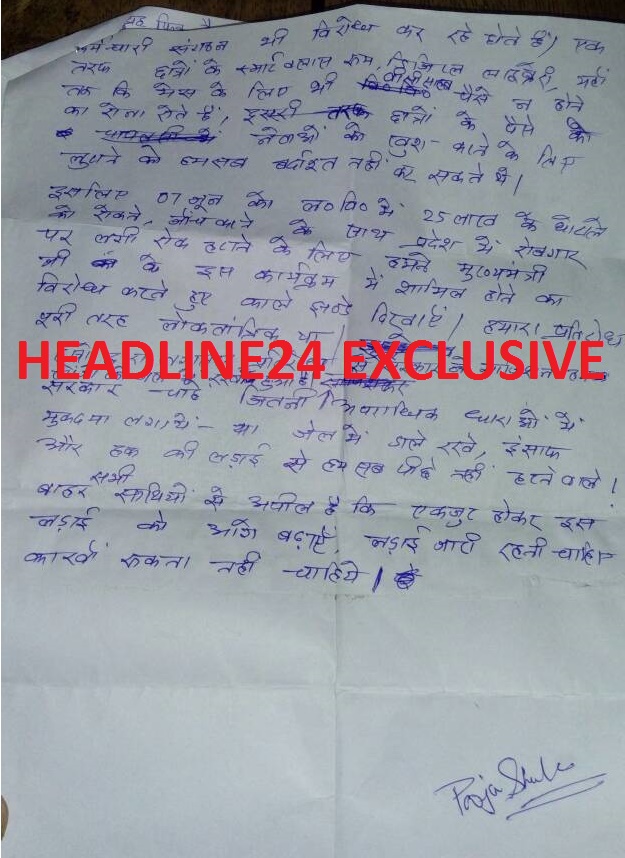 कर्मचारी संगठन भी विरोध कर रहे होते हैं। एक
तरफ छात्रों के स्मार्ट क्लास रूम, डिजिटल लाइब्रेरी, यहाँ
तक कि मेस के लिए भी वीसी साब पैसे न होने
का रोना रोते हैं, दूसरी तरफ छात्रों के पैसे को
नेताओं को खुश करने के लिए
लुटाने को हम सब बर्दाश्त नहीं कर सकते थे।
इसलिए 07 जून को ल०वि० में 25 लाख के घोटाले
को रोकने, जाँच कराने के साथ प्रदेश में रोजगार
पर लगी रोक हटाने के लिए हमने मुख्यमंत्री
जी के इस कार्यक्रम में शामिल होने का
विरोध करते हुए काले झण्डे दिखाएं। हमारा प्रतिरोध
पूरी तरह लोकतांत्रिक था।
HEADLINE24 EXCLUSIVE
सरकार चाहे जितनी आपराधिक धाराओं में
मुकदमा लगाये या जेल में डाले रखे, इंसाफ
और हक की लड़ाई से हम सब पीछे नहीं हटने वाले।
बाहर सभी साथियों से अपील है कि एकजुट होकर इस
लड़ाई को आगे बढ़ाएँ, लड़ाई जारी रहनी चाहिए
कारवाँ रुकना नहीं चाहिये।
Pooja Shukla